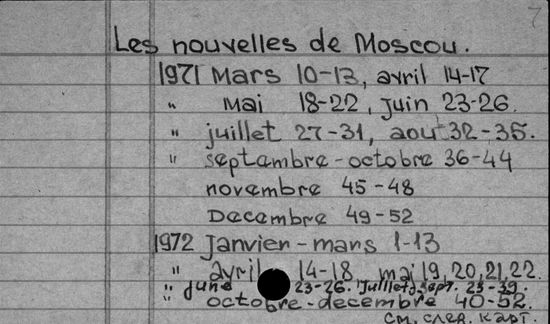 7
Les nouvelles de Moscou.
1971 Mars 10-13, avril 14-17
" Mai 18-22, Juin 23-26.
" juillet 27-31, aout 32-35.
" septambre-octobre 36-44
novembre 45-48
Decembre 49-52
1972 Janvier-mars 1-13
" avril 14-18 mai 19,20,21,22.
" june 23-26. Juillet, sept. 25-39.
" octobre-decembre 40-52.
см. след. карт.